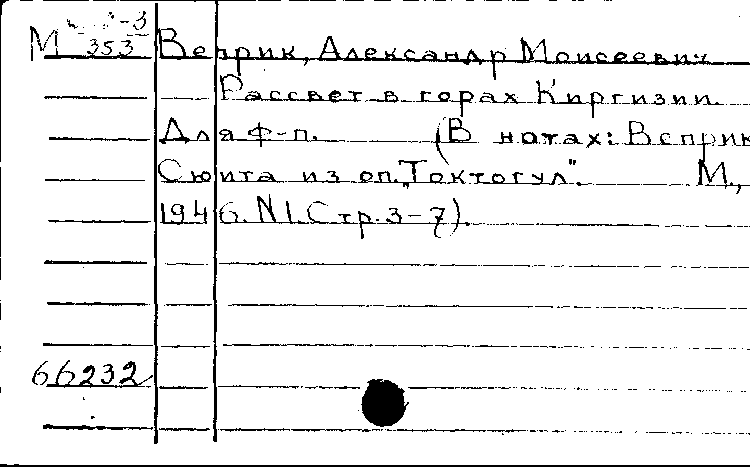 М 353 Веприк, Александр Моисеевич
Рассвет в горах Киргизии.
Для ф-п. (В нотах: Веприк
Сюита из оп. "Токтогул". М.,
1946. N1. Стр. 3-7).
66232